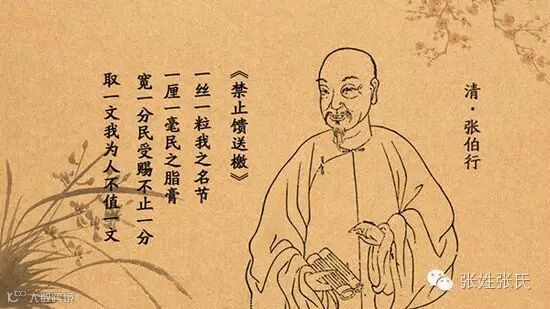 清·张伯行
《禁止馈送檄》
一丝一粒我之名节
一厘一毫民之脂膏
宽一分民受赐不止一分
取一文我为人不值一文
张姓张氏
大数跨境